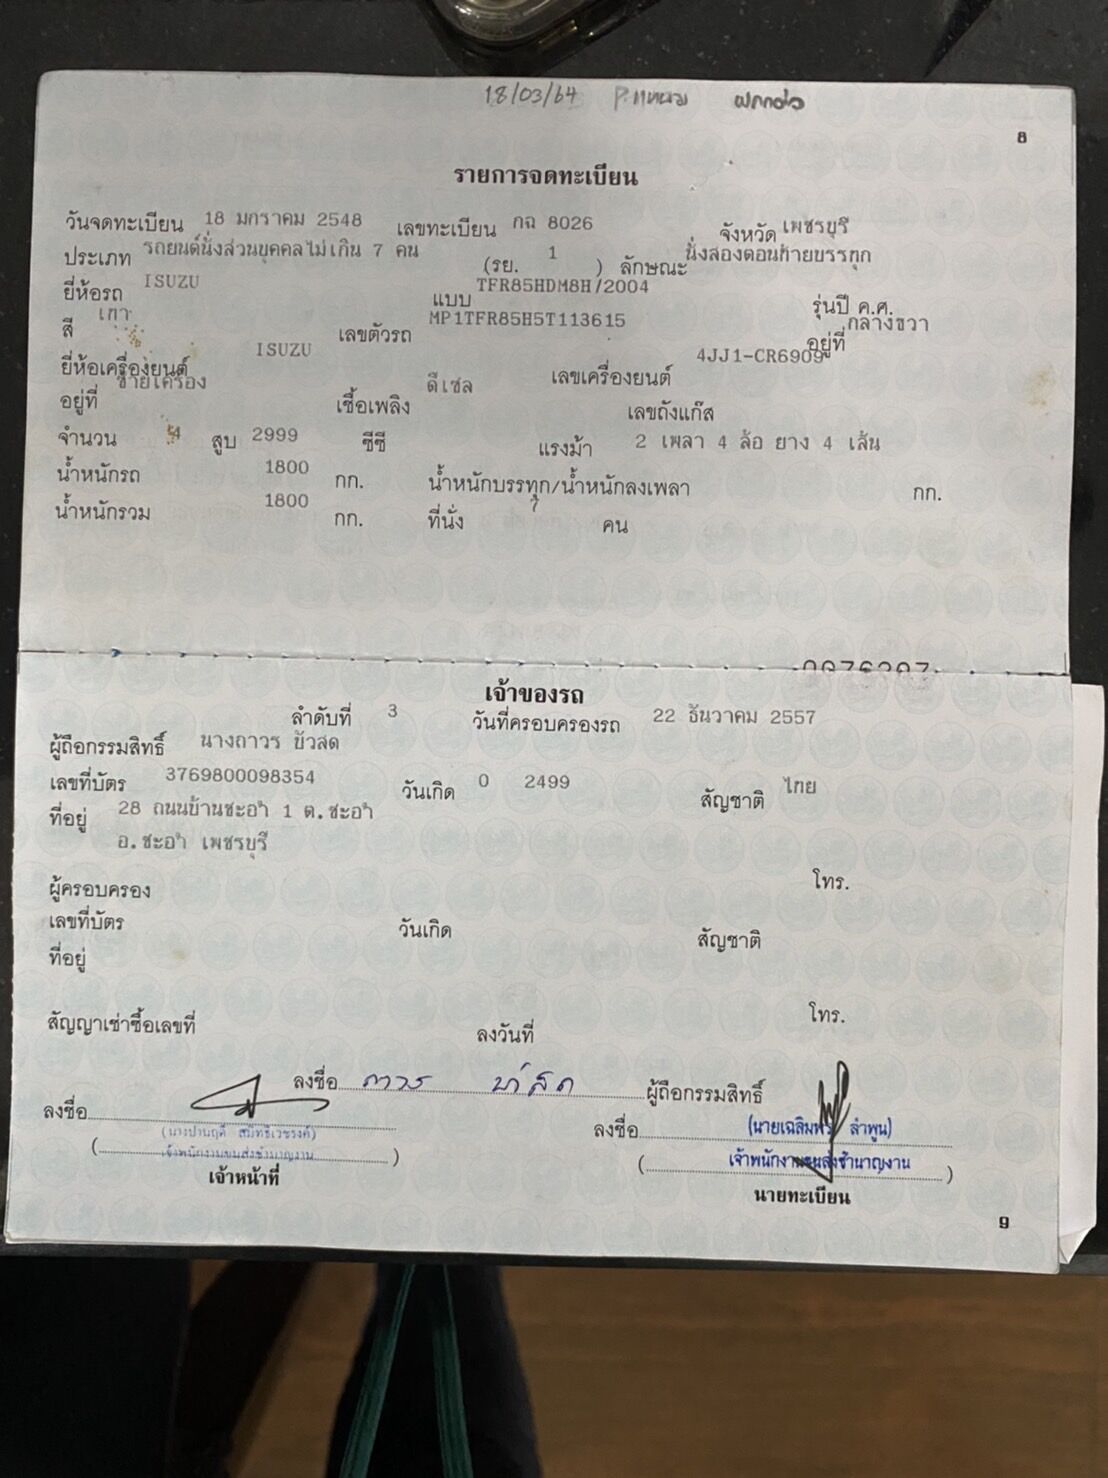 18/03/64
8
รายการจดทะเบียน
วันจดทะเบียน 18 มกราคม 2548 เลขทะเบียน กฉ 8026 จังหวัด เพชรบุรี
ประเภท รถยนต์นั่งส่วนบุคคลไม่เกิน 7 คน (รย. 1 ) ลักษณะ นั่งสองตอนท้ายบรรทุก
ยี่ห้อรถ ISUZU แบบ TFR85HDM8H/2004 รุ่นปี ค.ศ.
สี เทา เลขตัวรถ MP1TFR85H5T113615 อยู่ที่ กลางขวา
ยี่ห้อเครื่องยนต์ ISUZU เลขเครื่องยนต์ 4JJ1-CR6909
อยู่ที่ ซ้ายเครื่อง เชื้อเพลิง ดีเซล เลขถังแก๊ส
จำนวน 4 สูบ 2999 ซีซี แรงม้า 2 เพลา 4 ล้อ ยาง 4 เส้น
น้ำหนักรถ 1800 กก. น้ำหนักบรรทุก/น้ำหนักลงเพลา กก.
น้ำหนักรวม 1800 กก. ที่นั่ง 7 คน
เจ้าของรถ
ลำดับที่ 3 วันที่ครอบครองรถ 22 ธันวาคม 2557
ผู้ถือกรรมสิทธิ์ นางถาวร บัวสด
เลขที่บัตร 3769800098354 วันเกิด 0 2499 สัญชาติ ไทย
ที่อยู่ 28 ถนนบ้านชะอำ 1 ต.ชะอำ
อ.ชะอำ เพชรบุรี
ผู้ครอบครอง โทร.
เลขที่บัตร วันเกิด สัญชาติ
ที่อยู่
โทร.
สัญญาเช่าซื้อเลขที่ ลงวันที่
ลงชื่อ ถาวร บัวสด ผู้ถือกรรมสิทธิ์
ลงชื่อ ลงชื่อ
(นายเฉลิมพร ลำพูน)
เจ้าพนักงานขนส่งชำนาญงาน เจ้าพนักงานขนส่งชำนาญงาน
เจ้าหน้าที่ นายทะเบียน
9